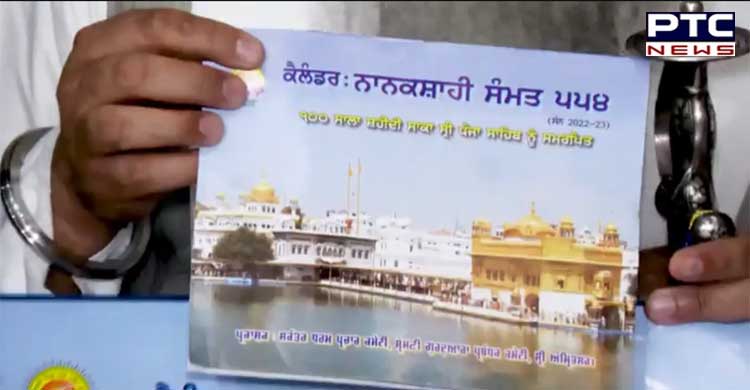 PTC
NEWS
ਕੈਲੰਡਰ: ਨਾਨਕਸ਼ਾਹੀ ਸੰਮਤ ੫੫੪
(ਸੰਨ 2022-23)
੧੦੦ ਸਾਲਾ ਸ਼ਹੀਦੀ ਸਾਕਾ ਸ੍ਰੀ ਪੰਜਾ ਸਾਹਿਬ ਨੂੰ ਸਮਰਪਿਤ
ਪ੍ਰਕਾਸ਼ਕ : ਧਰਮ ਪ੍ਰਚਾਰ ਕਮੇਟੀ, ਸ਼੍ਰੋਮਣੀ ਗੁਰਦੁਆਰਾ ਪ੍ਰਬੰਧਕ ਕਮੇਟੀ, ਸ੍ਰੀ ਅੰਮ੍ਰਿਤਸਰ।